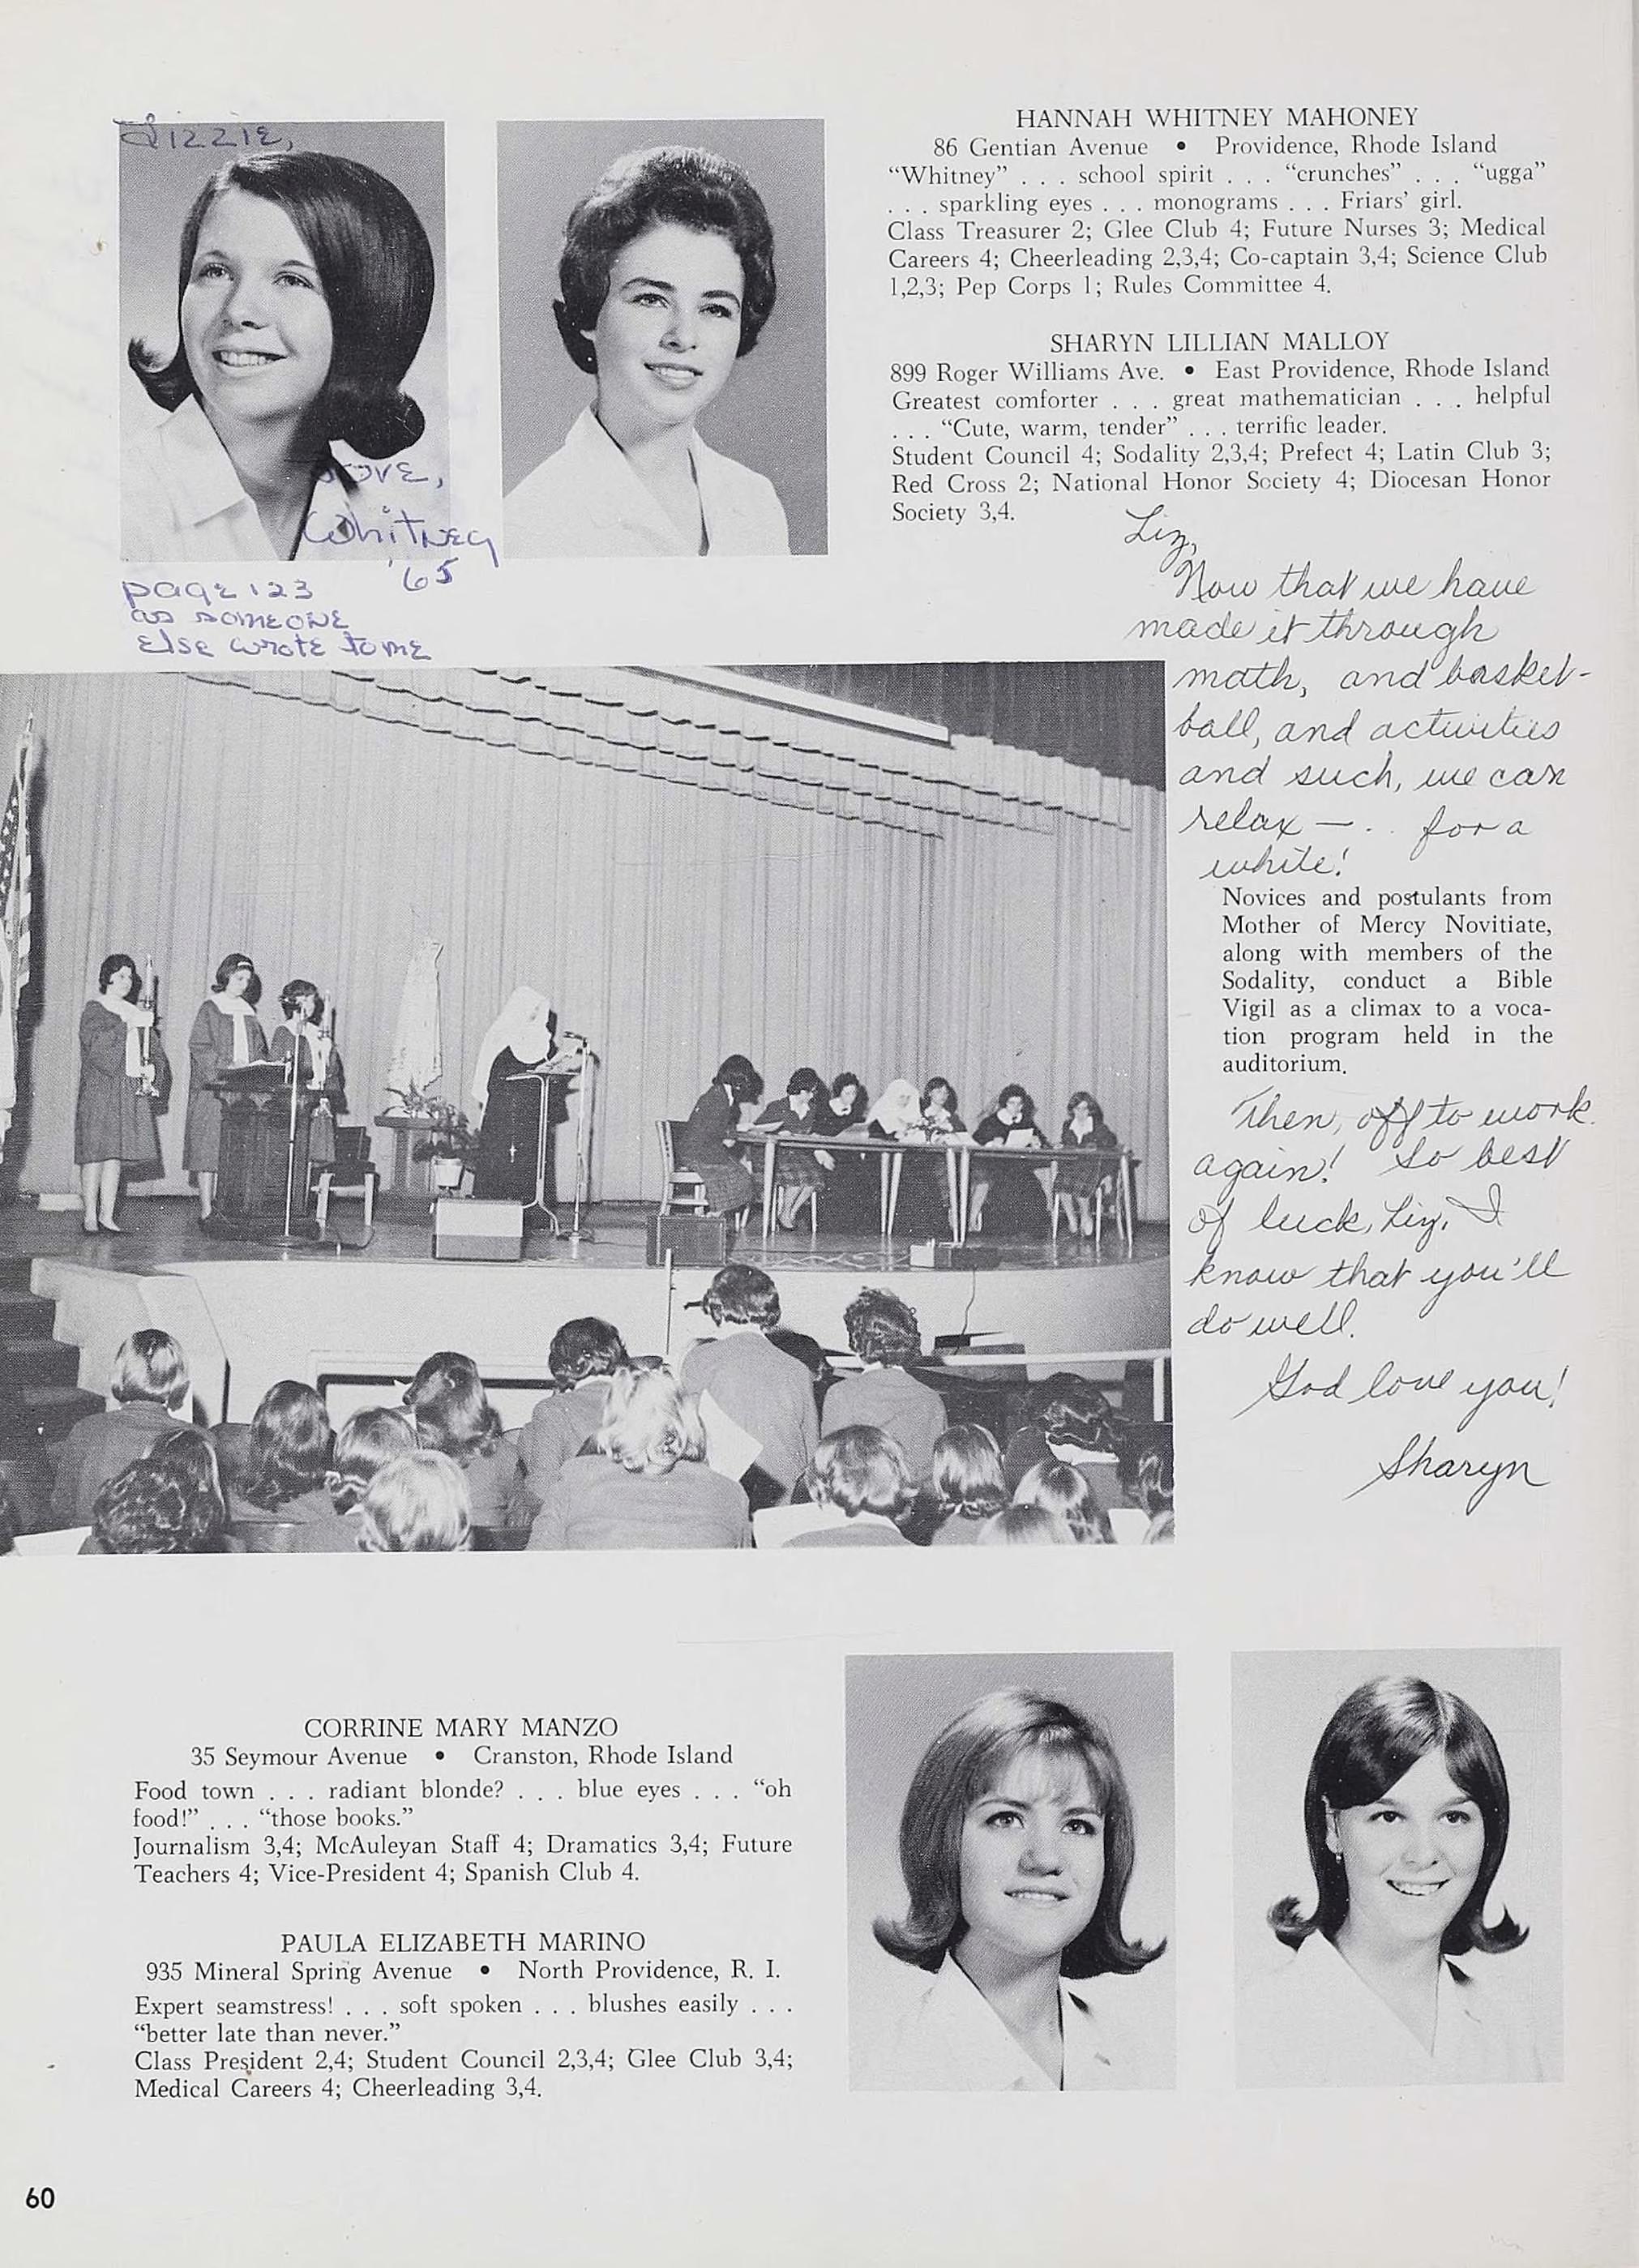 Lizzie,
Love,
Whitney
'65
page 123
as someone
else wrote to me
HANNAH WHITNEY MAHONEY
86 Gentian Avenue • Providence, Rhode Island
“Whitney” . . . school spirit . . . “crunches” . . . “ugga”
. . . sparkling eyes . . . monograms . . . Friars’ girl.
Class Treasurer 2; Glee Club 4; Future Nurses 3; Medical
Careers 4; Cheerleading 2,3,4; Co-captain 3,4; Science Club
1,2,3; Pep Corps 1; Rules Committee 4.
SHARYN LILLIAN MALLOY
899 Roger Williams Ave. • East Providence, Rhode Island
Greatest comforter . . . great mathematician . . . helpful
. . . “Cute, warm, tender” . . . terrific leader.
Student Council 4; Sodality 2,3,4; Prefect 4; Latin Club 3;
Red Cross 2; National Honor Society 4; Diocesan Honor
Society 3,4.
Liz,
Now that we have
made it through
math, and basket-
ball, and activities
and such, we can
relax — . . for a
while!
Novices and postulants from
Mother of Mercy Novitiate,
along with members of the
Sodality, conduct a Bible
Vigil as a climax to a voca-
tion program held in the
auditorium.
Then, off to work
again! So best
of luck, Liz. I
know that you'll
do well.
God love you!
Sharyn
CORRINE MARY MANZO
35 Seymour Avenue • Cranston, Rhode Island
Food town . . . radiant blonde? . . . blue eyes . . . “oh
food!” . . . “those books.”
Journalism 3,4; McAuleyan Staff 4; Dramatics 3,4; Future
Teachers 4; Vice-President 4; Spanish Club 4.
PAULA ELIZABETH MARINO
935 Mineral Spring Avenue • North Providence, R. I.
Expert seamstress! . . . soft spoken . . . blushes easily . . .
“better late than never.”
Class President 2,4; Student Council 2,3,4; Glee Club 3,4;
Medical Careers 4; Cheerleading 3,4.
60